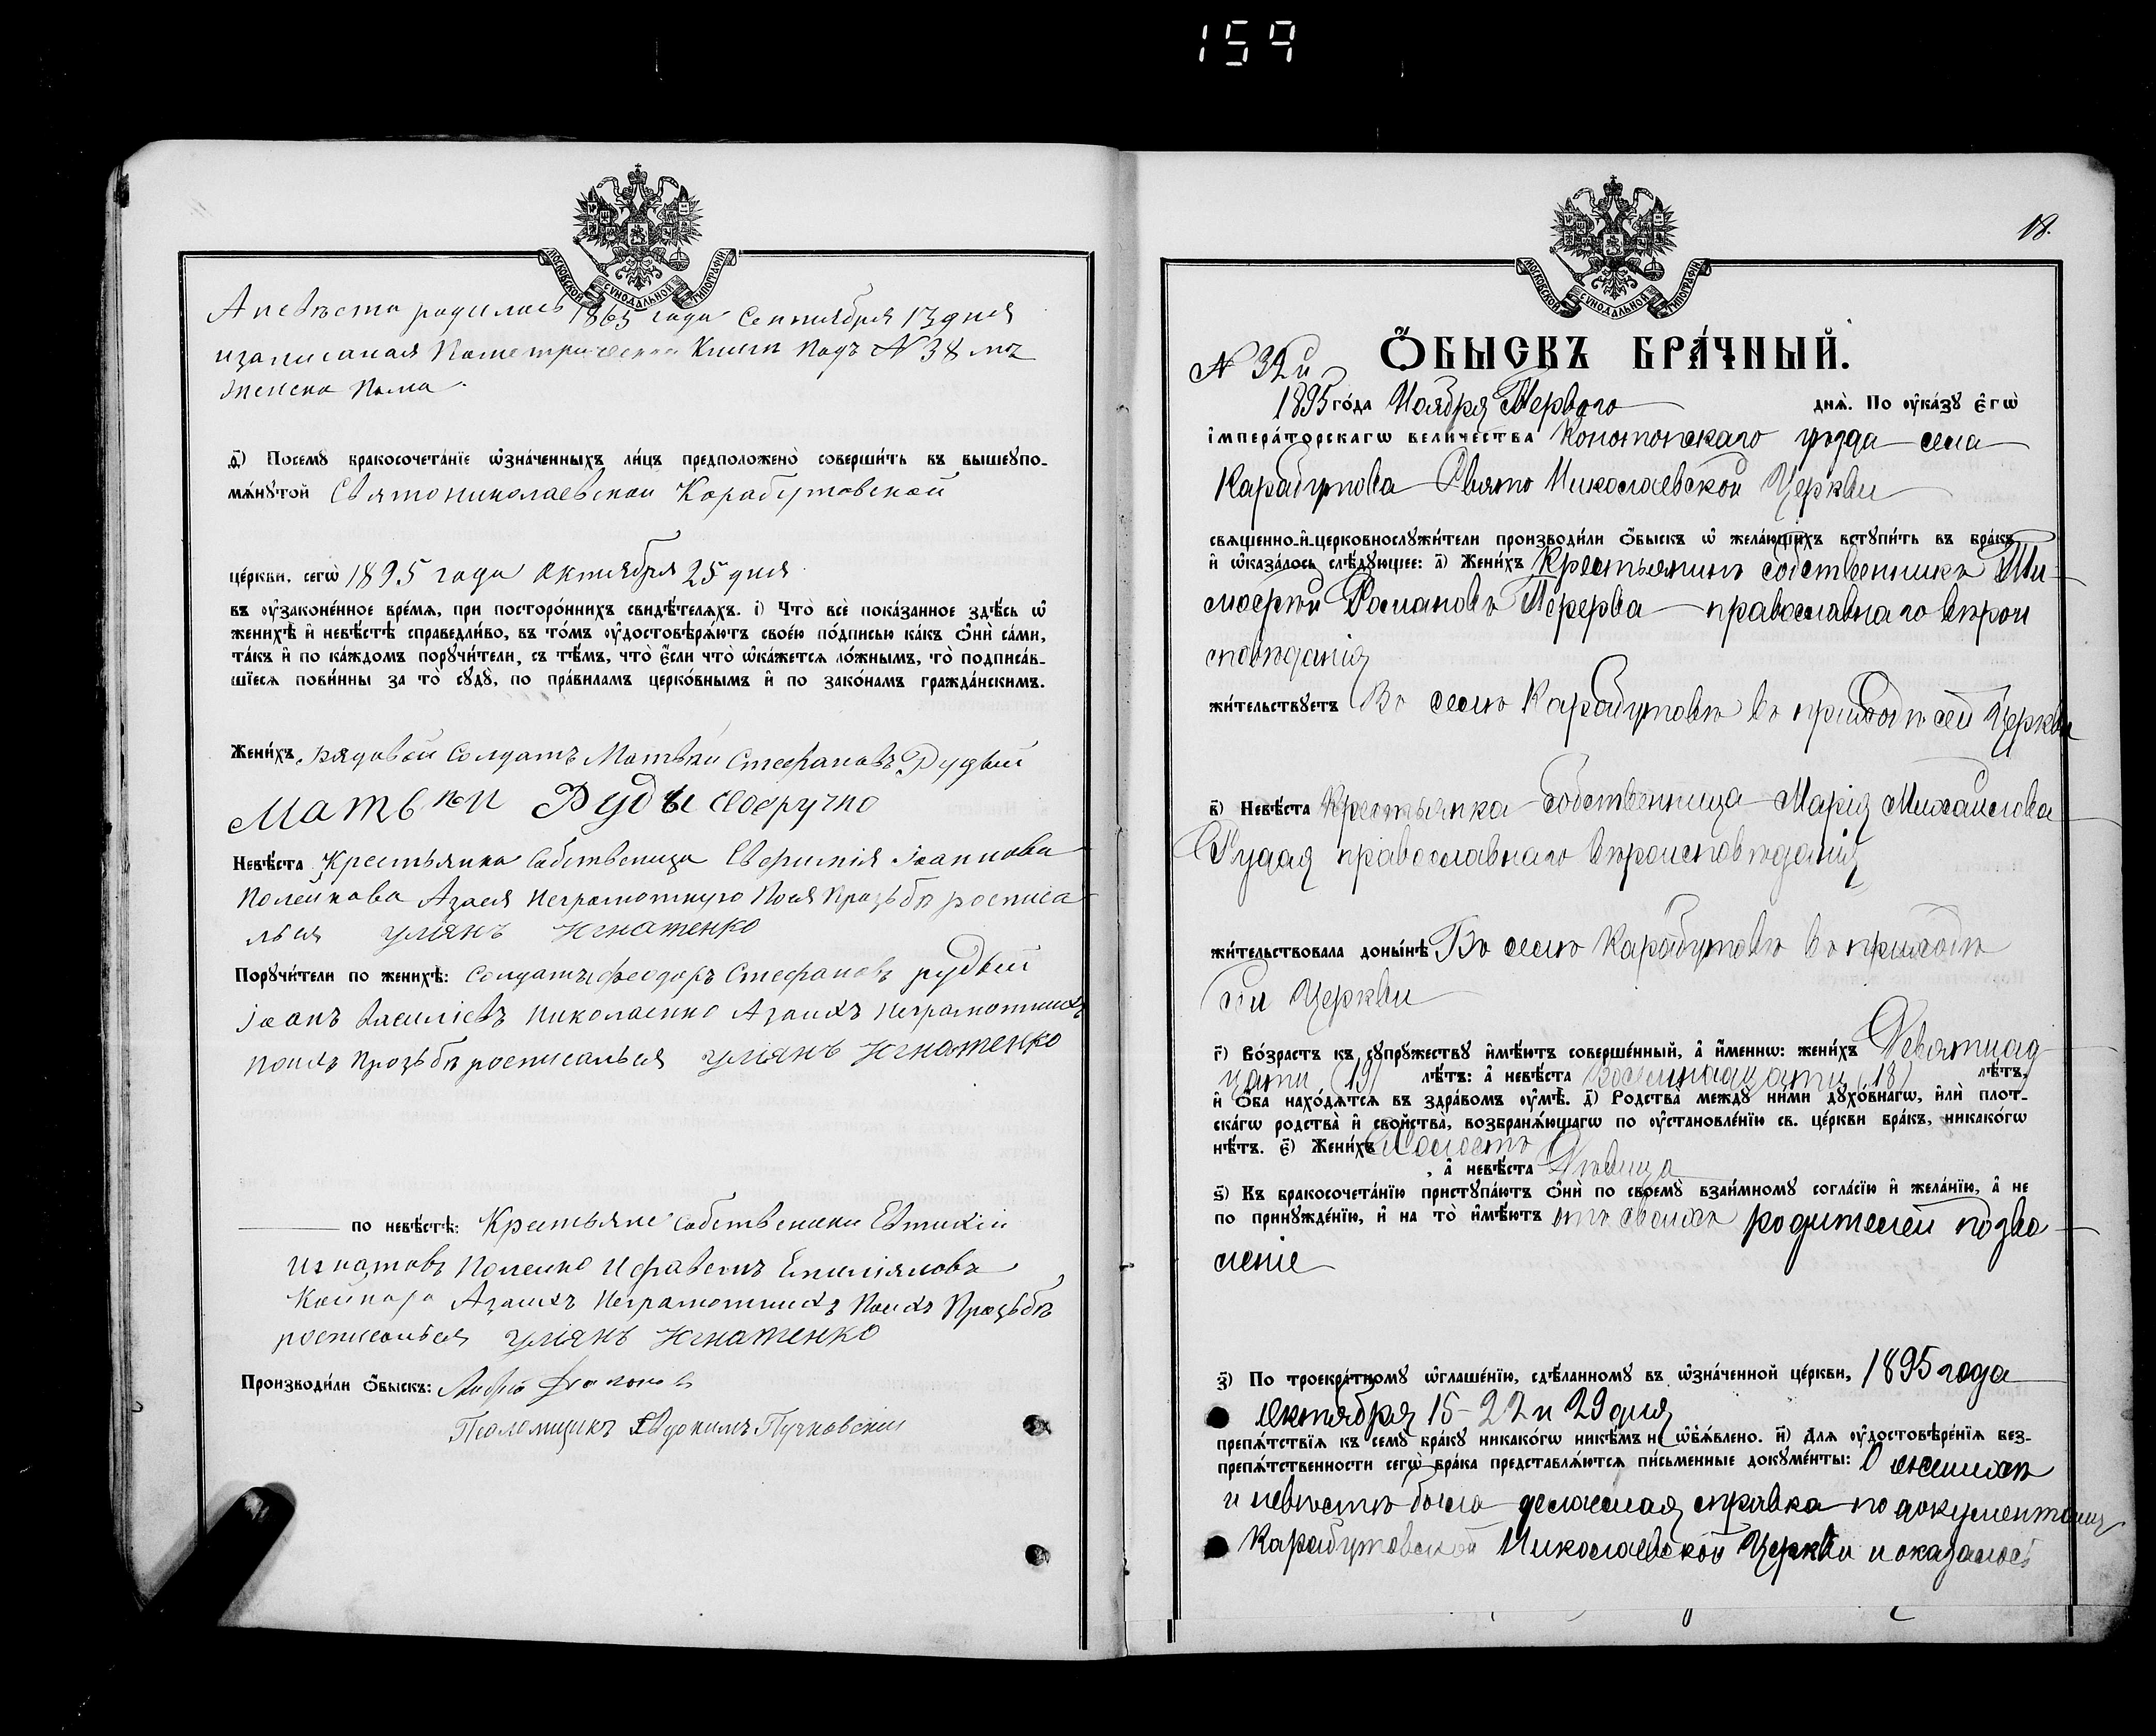 159
МОСКОВСКОЙ СѴНОДАЛЬНОЙ ТИПОГРАФІИ
А невѣста родилась 1865 года Сентября 13 дня
изаписаная Пометрической Книги Подъ № 38 мъ
Женска Пола
д҃) Посемꙋ бракосочета́нїе ѡ҆зна́ченныхъ ли́цъ предположено̀ соверши́ть въ вышеꙋпо-
мѧ́нꙋтой Святониколаевской Карабутовской
це́ркви, сегѡ̀ 1895 года Октября 25 дня
въ ᲂу҆зако́ненное вре́мѧ, при посторо́ннихъ свидѣ́телѧхъ. і҃) Что̀ всѐ пока́занное здѣ́сь ѡ҆
женихѣ̀ и҆ невѣ́стѣ справедли́во, въ то́мъ ᲂу҆достовѣрѧ́ютъ свое́ю по́дписью ка́къ ѻ҆нѝ са́ми,
та́къ и҆ по ка́ждомъ порꙋчи́тели, съ тѣ́мъ, что̀ є҆́сли что̀ ѡ҆ка́жетсѧ ло́жнымъ, то̀ подписа́в-
шїесѧ пови́нны за то̀ сꙋдꙋ̀, по пра́виламъ церко́внымъ и҆ по зако́намъ гражда́нскимъ.
Жени́хъ Рядовой Солдатъ Матвѣй Стефановъ Рудый
Матвѣй Руды своеручно
Невѣ́ста Крестьянка Собственица Евфимія Іоаннова
Полейкова Азаея Неграмотную Поея Прозьбѣ росписа
лься Улиянъ Игнатенко
Порꙋчи́тели по женихѣ̀: Солдатъ Феодоръ Стефановъ рудый
Іоанъ Василіевъ Николаенко Азаихъ Неграмотныхъ
Поихъ Прозьбѣ росписалься Улиянъ Игнатенко
по невѣ́стѣ: Крестьяне Собственики Евтихій
Игнатовъ Поленко И Емилияновъ
Азаихъ Неграмотныхъ Поихъ Прозьбѣ
росписалься Улиянъ Игнатенко
Производи́ли ѻ҆́быскъ:
Псаломщикъ Евдокимъ Пучковскій
18.
МОСКОВСКОЙ СѴНОДАЛЬНОЙ ТИПОГРАФІИ
Ѻ҆́БЫСКЪ БРА́ЧНЫЙ.
№ 32й
1895 го́да Ноября Перваго днѧ̀. По ᲂу҆ка́зꙋ є҆гѡ̀
і҆мпера́торскагѡ вели́чества Конотопскаго уѣзда села
Карабутова Свято Николаевской Церкви
свѧще́нно-и҆-церковнослꙋжи́тели производи́ли ѻ҆́быскъ ѡ҆ жела́ющихъ встꙋпи́ть въ бра́къ,
и҆ ѡ҆каза́лось слѣ́дꙋющее: а҃) Жени́хъ Крестьянинъ собственникъ Ти-
мофей Романовъ Перерва православнаго вѣрои
сповѣданія
жи́тельствꙋетъ Въ селѣ Карабутовѣ въ приходѣ сей Церкви
в҃) Невѣ́ста Крестьянка Собственница Марія Михайлова
Рудая православнаго вѣроисповѣданія
жи́тельствовала доны́нѣ Въ селѣ Карабутовѣ въ приходѣ
сей Церкви
г҃) Во́зрастъ къ сꙋпрꙋ́жествꙋ и҆мѣ́ютъ соверше́нный, а҆ и҆́меннѡ: жени́хъ Девятнад
цати (19) лѣ́тъ: а҆ невѣ́ста восемнадцати (18) лѣ́тъ,
и҆ ѻ҆́ба нахо́дѧтсѧ въ здра́вомъ ᲂу҆мѣ̀. д҃) Родства̀ междꙋ̀ ни́ми дꙋхо́внагѡ, и҆лѝ плот-
ска́гѡ родства̀ и҆ сво́йства, возбранѧ́ющагѡ по ᲂу҆становле́нїю св. це́ркви бра́къ, никако́гѡ
нѣ́тъ. є҃) Жени́хъ Холостъ
, а҆ невѣ́ста Дѣвица
ѕ҃) Къ бракосочета́нїю пристꙋпа́ютъ ѻ҆нѝ по своемꙋ̀ взаи́мномꙋ согла́сїю и҆ жела́нїю, а҆ не
по принꙋжде́нїю, и҆ на то̀ и҆мѣ́ютъ отъ своихъ родителей позво
леніе
з҃) По троекра́тномꙋ ѡ҆глаше́нїю, сдѣ́ланномꙋ въ ѡ҆зна́ченной це́ркви, 1895 года
Октября 15-22 и 29 дня
препѧ́тствїѧ къ семꙋ̀ бра́кꙋ никако́гѡ никѣ́мъ не ѡ҆б̾ѧ́влено. и҃) Длѧ ᲂу҆достовѣре́нїѧ без-
препѧ́тственности сегѡ̀ бра́ка представлѧ́ютсѧ пи́сьменные докꙋме́нты: О женихѣ
и невѣстѣ была делаемая справка по документамъ
Карабутовской Николаевской Церкви и оказалось